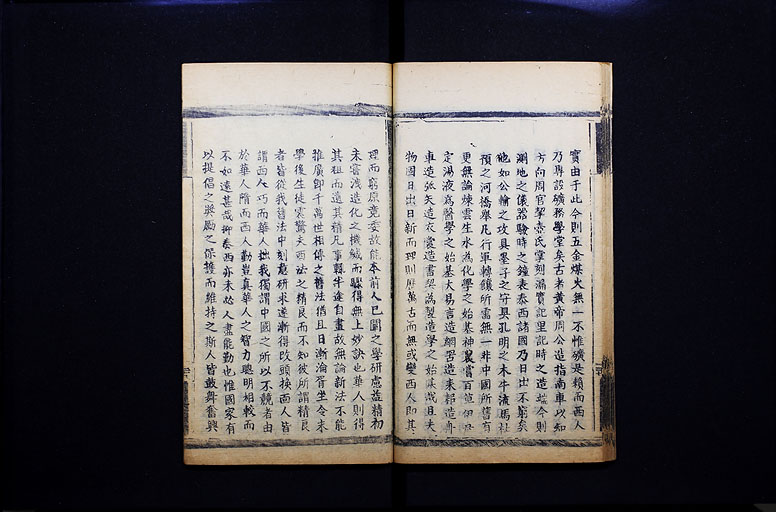 寶由于此今則五金煤火無一不惟礦是賴而西人
乃專設礦務學堂矣古者黃帝周公造指南車以知
方向周官挈壺氏掌刻漏實記里記時之造端今則
測地之儀器驗時之鐘表泰西諸國乃日出不窮矣
他如公輸之攻具墨子之守具孔明之木牛流馬杜
預之河橋舉凡行軍轉餽所需無一非中國所舊有
更無論煉雲生水為化學之始基神農嘗百草伊尹
定湯液為醫學之始基大易言造網罟造耒耜造舟
車造弧矢造衣裳造書契為製造學之始基哉且夫
物固日出日新而理則歷萬古而無或變西人即其
理而窮原竟委故能本前人已闡之學研慮益精初
未嘗洩造化之機緘而驟得無上妙訣也華人則得
其粗而遺其精凡事輒半途自畫故無論新法不能
推廣即千萬世相傳之舊法猶且日漸淪胥坐令末
學後生徒震驚夫西法之精良而不知彼所謂精良
者皆從我舊法中刻意研求遂漸得改頭換面人皆
謂西人巧而華人拙我獨謂中國之所以不競者由
於華人隋而西人勤豈真華人之智力聰明相較而
不如遠甚哉抑泰西亦未必人盡能勤也惟國家有
以提倡之奬勵之保護而維持之斯人皆鼓舞奮興